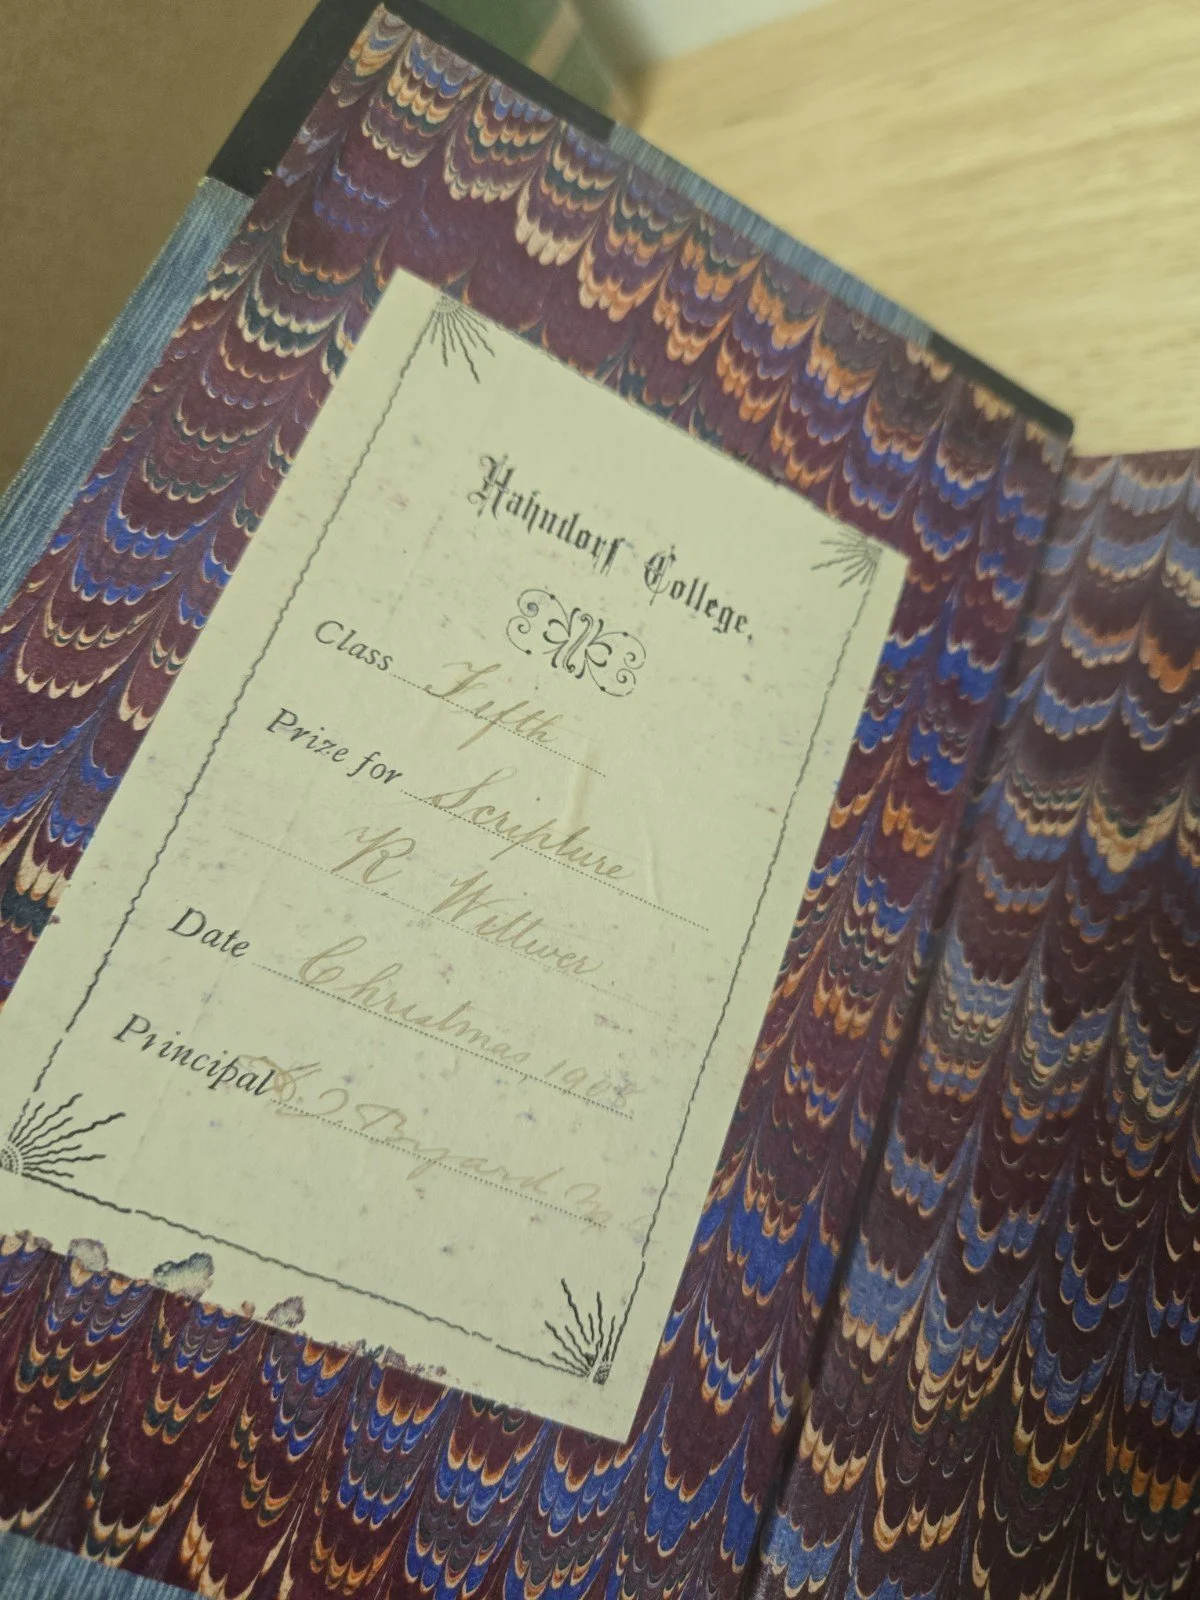 Hahndorf College.
Class Fifth
Prize for Scripture
R Wittwer
Date Christmas 1908
Principal D. J. Byard M.